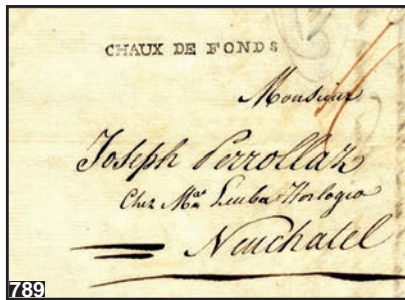 CHAUX DE FONDS
Monsieur
Joseph Perrollaz
Chez Mr Leuba Horloger
Neuchatel
789